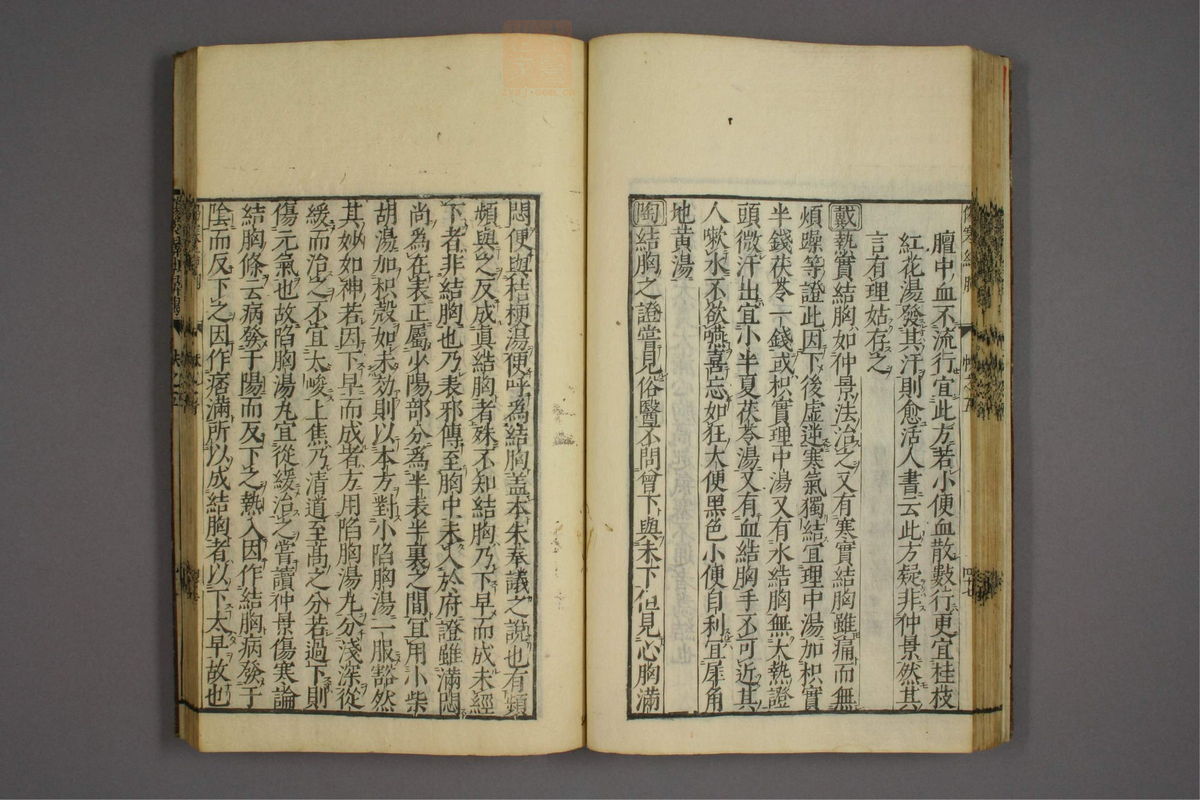 膻中血不流行宜此方若小便血散數行更宜桂枝
紅花湯發其汗則愈活人書云此方疑非仲景然其
言有理姑存之
戴熱實結胸如仲景法治之又有寒實結胸雖痛而無
煩躁等證此因下後虛逆寒氣獨結宜理中湯加枳實
半錢茯苓一錢或枳實理中湯又有水結胸無大熱證
頭微汗出宜小半夏茯苓湯又有血結胸手不可近其
人嗽水不欲嚥喜忘如狂大便黑色小便自利宜犀角
地黃湯
陶結胸之證嘗見俗醫不問曾下與未下但見心胸滿
悶便與桔梗湯便呼為結胸盖本朱奉議之說也有頻
頻與之反成真結胸者殊不知結胸乃下早而成未經
下者非結胸也乃表邪傳至胸中未入於府證雖滿悶
尚為在表正屬少陽部分為半表半裏之間宜用小柴
胡湯加枳殼如未効則以本方對小陷胸湯一服豁然
其妙如神若因下早而成者方用陷胸湯丸分淺深從
緩而治之不宜太峻上焦乃清道至髙之分若過下則
傷元氣也故陷胸湯丸宜從緩治之嘗讀仲景傷寒論
結胸條云病發于陽而反下之熱入因作結胸病發于
陰而反下之因作痞滿所以成結胸者以下太早故也